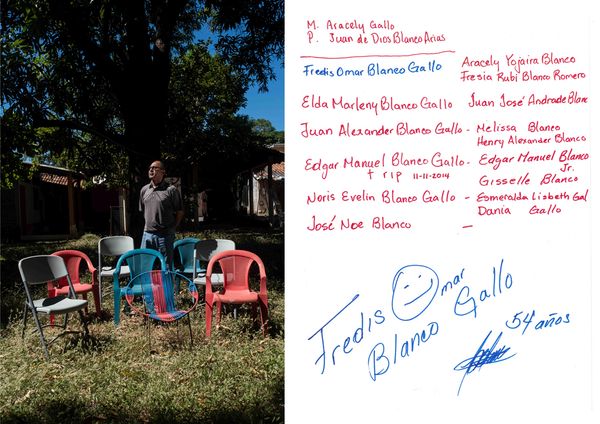 M. Aracely Gallo
P. Juan de Dios Blanco Arias
Fredis Omar Blanco Gallo
Aracely Yojaira Blanco
Fresia Rubi Blanco Romero
Elda Marleny Blanco Gallo
Juan José Andrade Blanc
Juan Alexander Blanco Gallo - Melissa Blanco
Henry Alexander Blanco
Edgar Manuel Blanco Gallo - Edgar Manuel Blanco
† rip 11-11-2014
Jr.
Gisselle Blanco
Noris Evelin Blanco Gallo - Esmeralda Lisbeth Gal
Dania Gallo
José Noe Blanco -
Fredis Omar
Blanco Gallo
54 años